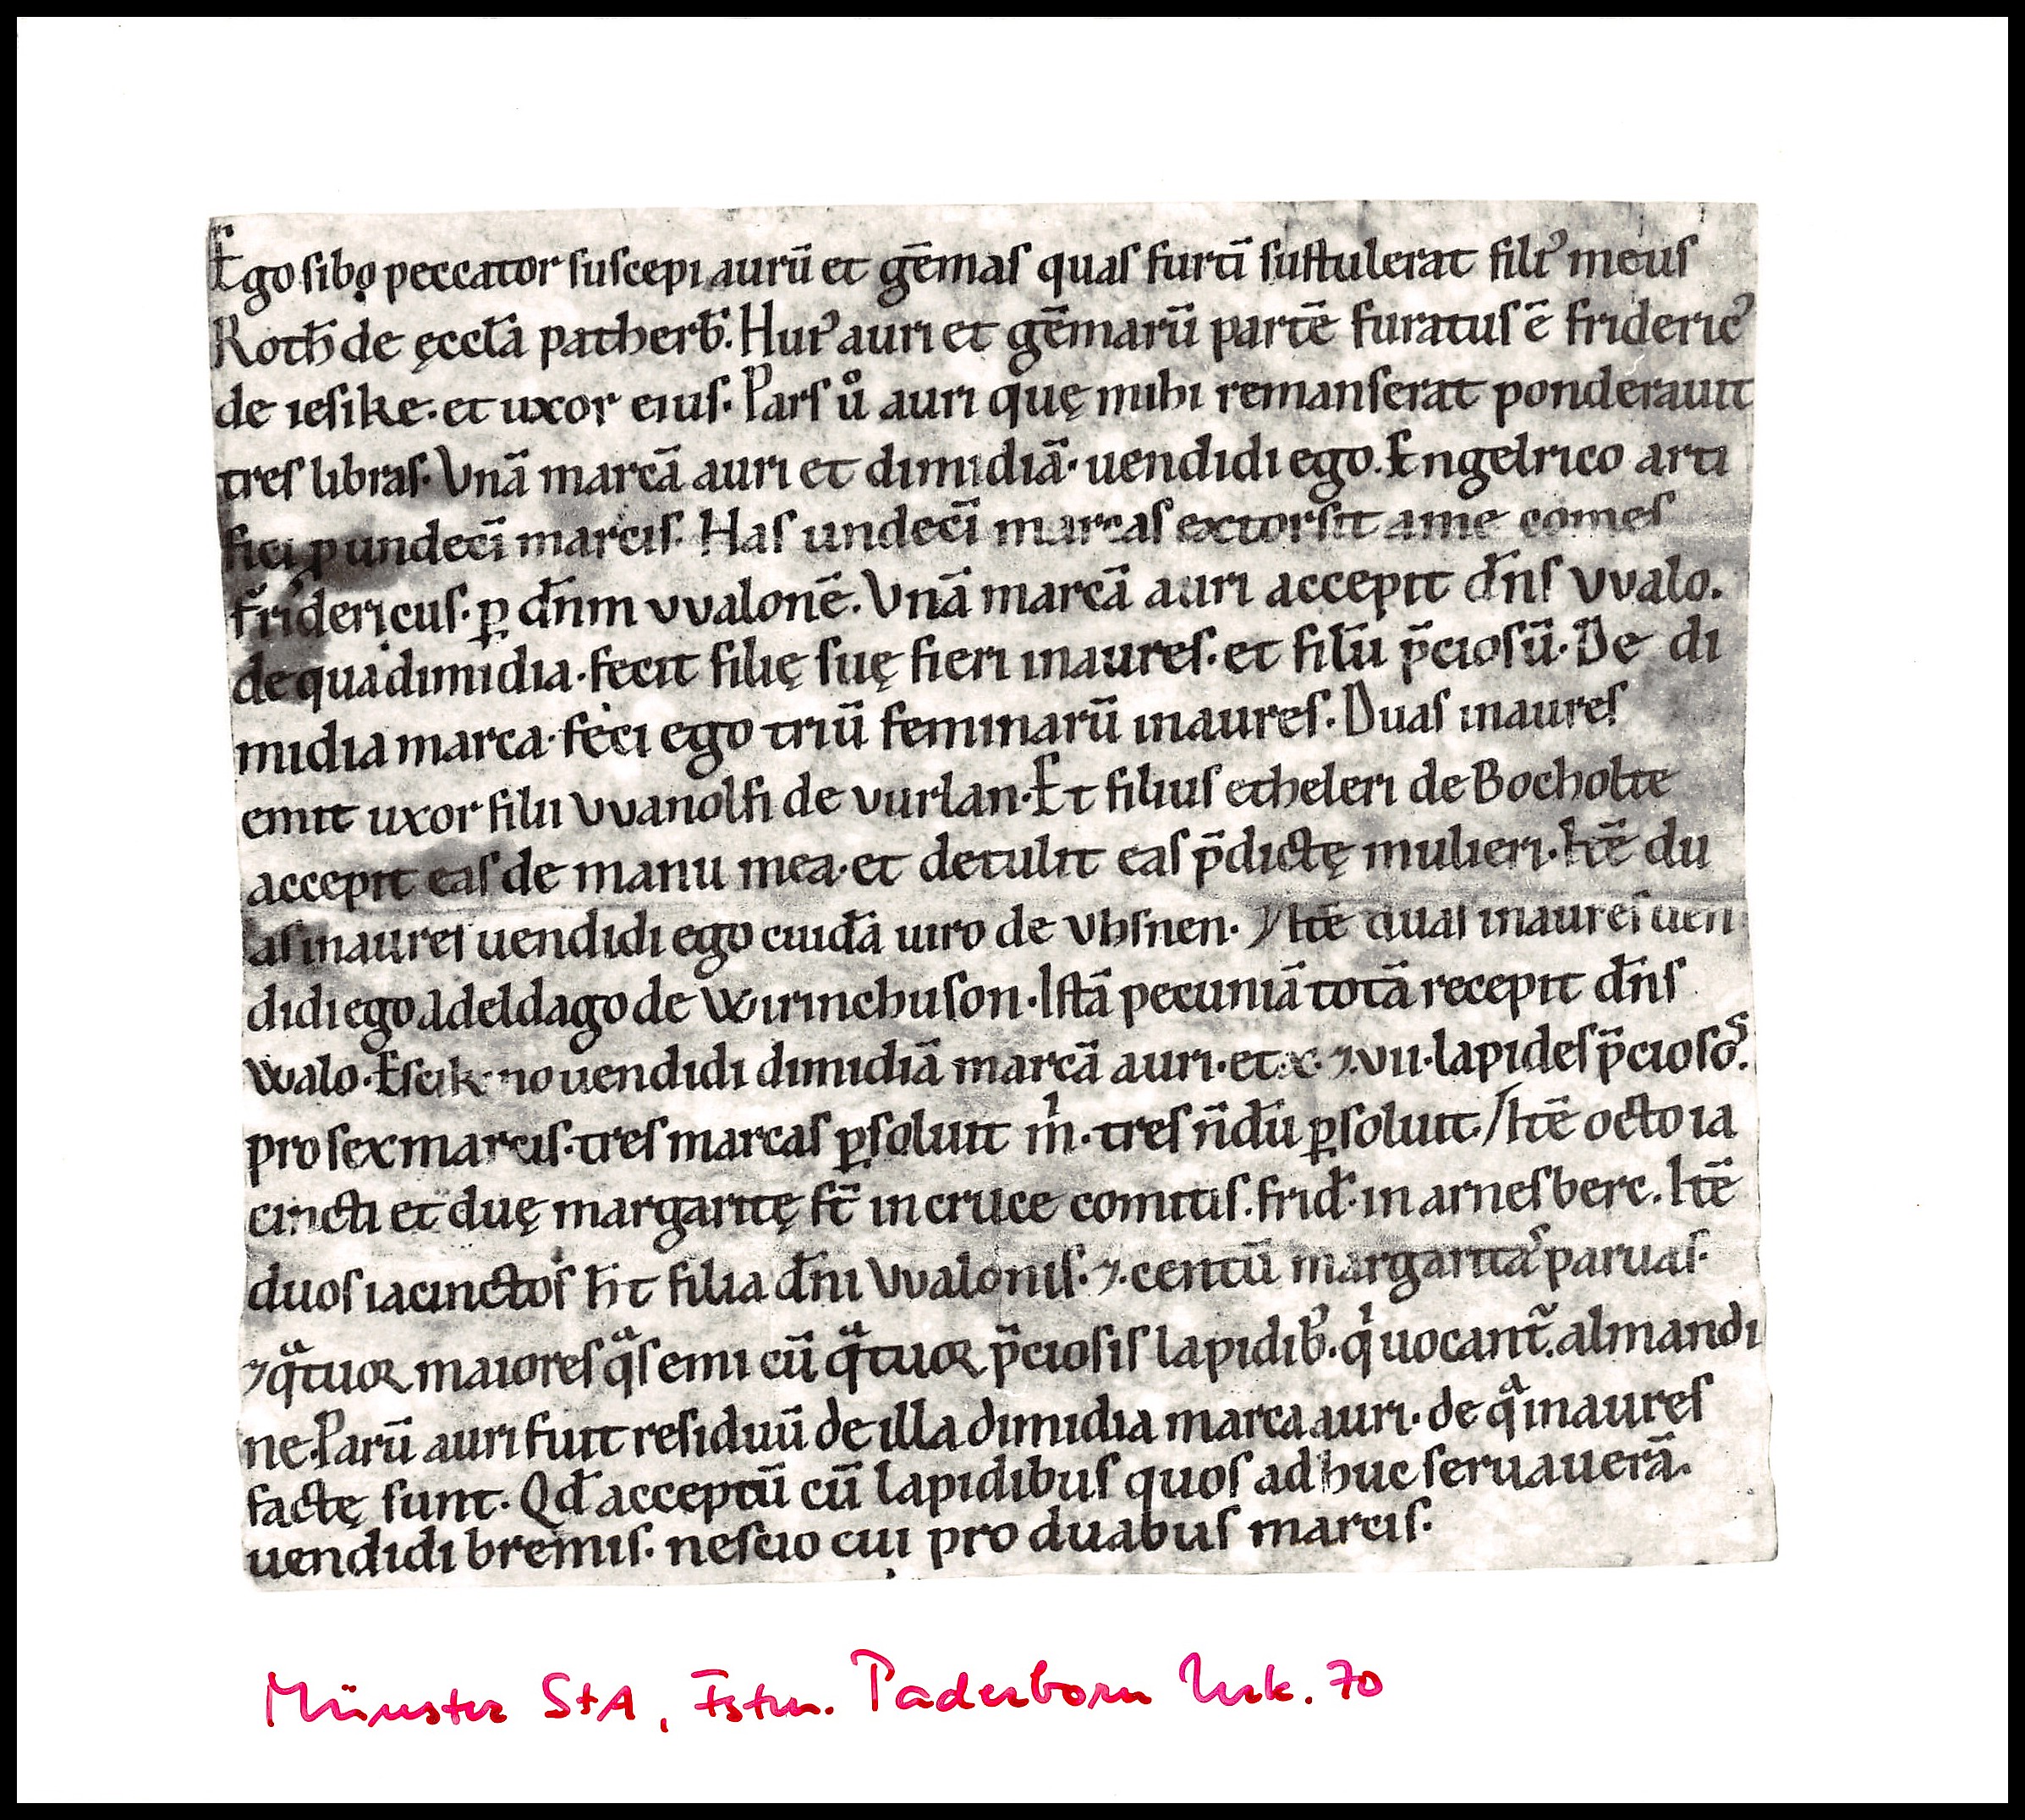 Ego sibo peccator suscepi aurū et gēmas quas furtī sustulerat filiꝰ meus
Roth̄ de ęccl̄a patherb̄. Huiꝰ auri et gēmarū partē furatus ē fridericꝰ
de iesike. et uxor eius. Pars ů auri quę mihi remanserat ponderauit
tres libras. Vnā marcā auri et dimidiā. uendidi ego. Engelrico arti
fici ꝓ undecī marcis. Has undecī marcas extorsit a me comes
fridericus. ꝑ dn̄m vvalonē. Vnā marcā auri accepit dn̄s vvalo.
de qua dimidia. fecit filię suę fieri inaures. et filū p̄ciosū. De di
midia marca. feci ego triū feminarū inaures. Duas inaures
emit uxor filii vvanolfi de vurlan. Et filius etheleri de Bocholte
accepit eas de manu mea. et detulit eas p̄dictę mulieri. Itē du
as inaures uendidi ego cuidā uiro de vhsnen. ⁊ Itē duas inaures uen
didi ego Adeldago de wirinchuson. Istā pecuniā totā recepit dn̄s
walo. uendidi dimidiā marcā auri. et x. ⁊. vii. lapides p̄ciosoˢ.
pro sex marcis. tres marcas ꝑsoluit mⁱ. tres n̄dū ꝑsoluit. Itē octo ia
cincti et duę margaritę st̄ in cruce comitis. frid̄. in arnesberc. Itē
duos iacinctos h̄t filia dn̄i vvalonis. ⁊. centū margaritaˢ paruas.
⁊ qᵃtuor maiores qᵃs emi cū qᵃtuor p̄ciosis lapidibꝰ. qⁱ uocant᷑. almandi
ne. Parū auri fuit residuū de illa dimidia marca auri. de qᵃ inaures
factę sunt. Qd̄ acceptū cū lapidibus quos adhuc seruauerā.
uendidi bremis. nescio cui pro duabus marcis.
Münster StA, Fstm. Paderborn Urk. 70